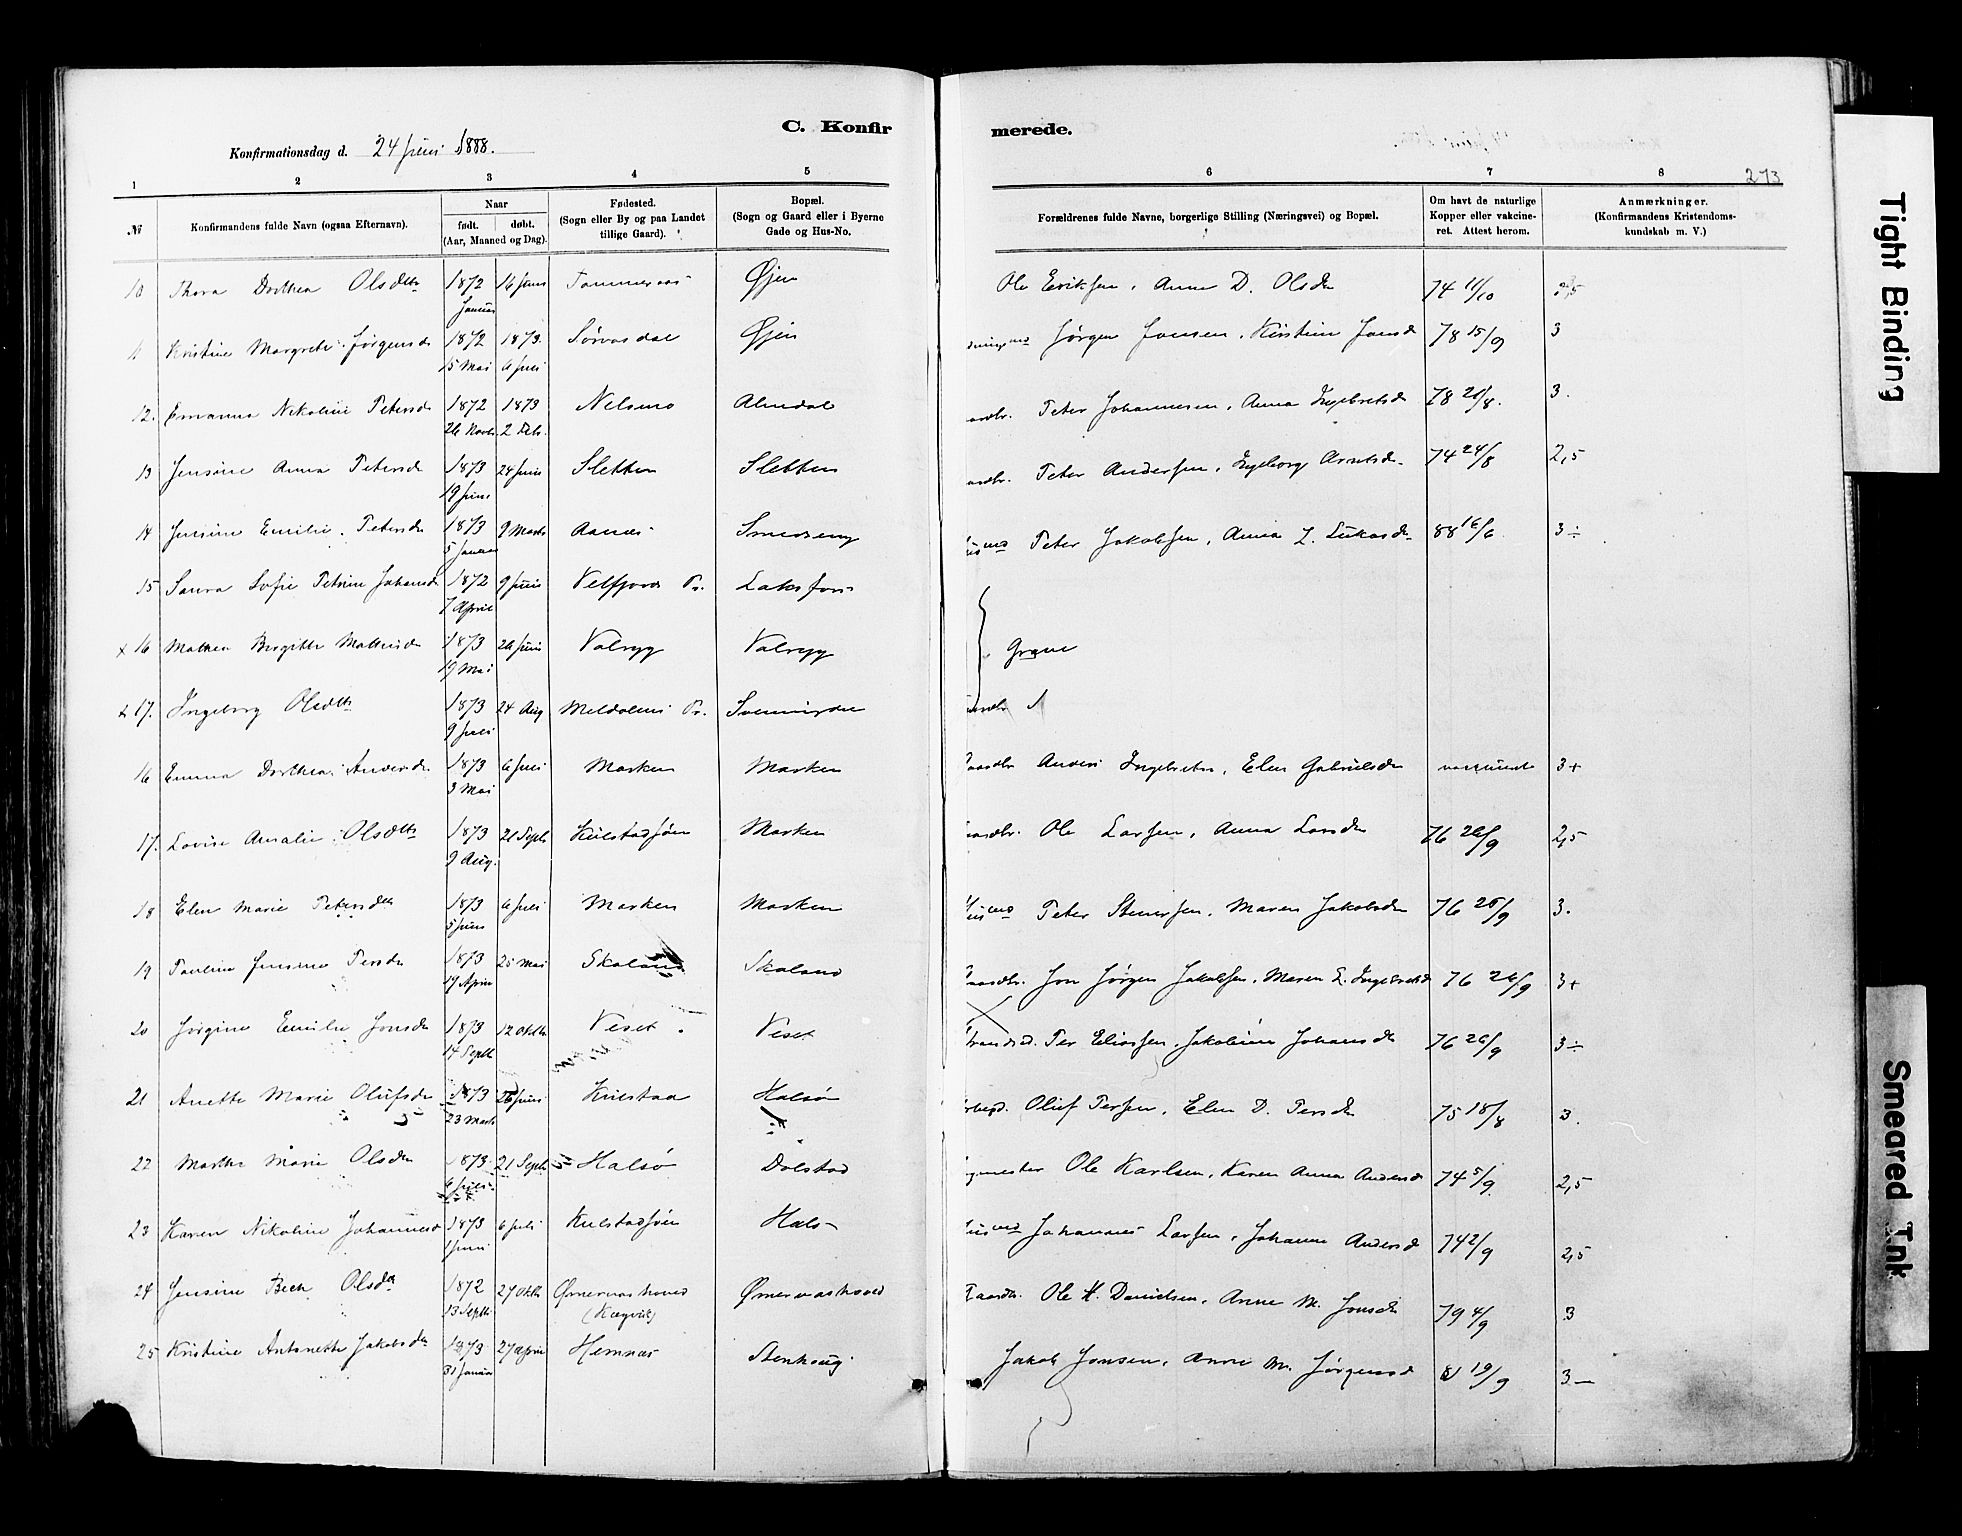 C. Konfirmerede.
Konfirmationsdag d. 24 Juni 1888.
273
1 2 3 4 5 6 7 8
№
Konfirmandens fulde Navn (ogsaa Efternavn).
Naar
født. døbt.
(Aar, Maaned og Dag).
Fødested.
(Sogn eller By og paa Landet
tillige Gaard).
Bopæl.
(Sogn og Gaard eller i Byerne
Gade og Hus-No.
Forældrenes fulde Navne, borgerlige Stilling (Næringsvei) og Bopæl.
Om havt de naturlige
Kopper eller vakcine-
ret. Attest herom.
Anmærkninger.
(Konfirmandens Kristendoms-
kundskab m. V.)
10 Thora Dorthea Olsdtr 1872 Januar 16 Juni Øjen Ole Eriksen, Anne D. Olsdr 74 11/10 2,5
Kristine Margrete Jørgensdr 1872 15 Mai 1873. 6 Juli Sørvasdal Øjen Jørgen Jonsen, Kirstine Jonsd 78 15/9 3
12. Emanna Nikoline Petersdr 1872 26 Novbr. 1873 2 Febr. Nelsmo Almdal Peter Johannesen, Anna Ingebretsdr 78 3.
13 Jensine Anna Petersdr 1873 19 Juni 24 Juni Sletten Sletten Peter Andersen, Ingeborg Arntsdr. 74 24/8 2,5
14 Jensine Emilie Petersdr 1873 5 Januar 9 Marts Aanes Smedseng Peter Jakobsen, Anna L. Lukasdr 88 16/6 3÷
15 Laura Sofie Petrine Johansdr 1872 7 April 9 Juni Velfjords Pr. Laksfors
x 16 Mathea Birgitte Mathisdr 1873 19 Mai 26 Juni Valryg Valryg Grane
x 17. Ingeborg Olsdtr 1873 9 Juli 24 Aug Meldalens Pr. Svenningdal
16 Emma Dorthea Andersdr 1873 3 Mai 6 Juli Marken Marken Anders Ingebretsn, Elen Gabrielsdr 3+
17. Lovise Amalie Olsdtr 1873 9 Aug. 21 Septb Kulstadsjøen Marken Ole Larsen, Anna Larsdr 76 26/9 2,5
18 Elen Marie Petersdtr 1873 5 Juni 6 Juli Marken Marken Peter Stenersen, Maren Jakobsdr 76 3.
19 Pauline Jensine Persdr 1873 19 April 25 Mai Skaland Skaland Jon Jørgen Jakobsen, Maren E. Ingebretsd 76 26/9 3+
20 Jørgine Emilie Jonsdr 1873 14 Septb 12 Oktbr Veset Veset Per Eliassen, Jakobine Johansdr 76 26/9 3÷
21 Anette Marie Olufsdr 1873 23 Marts 26 Juni Kulstad Halsø Oluf Persen, Elen D. Persdr 75 18/8 3.
22 Marthe Marie Olsdtr 1873 6 Juli 21 Septb Halsø Dolstad Ole Karlsen, Karen Anna Andersd 74 5/9. 2,5
23 Karen Nikoline Johannesd 1873 1 Juni 6 Juli Kulstadsjøen Hals Johannes Larsen, Johanne Andersd 74 2/9 2,5
24 Jensine Bech Olsdtr 1872 13 Septb. 27 Oktbr Ømervashoved (Kægvik) Ømervashoved Ole H. Danielsen, Anne M. Jonsdtr 79 4/9 3
25 Kristine Antonette Jakobsdtr 1873 31 Januar 27 April Hemnæs Stenhoug Jakob Jonsen, Anne M. Jørgensd 81 19/9 3—
Tight Binding
Smeared Ink